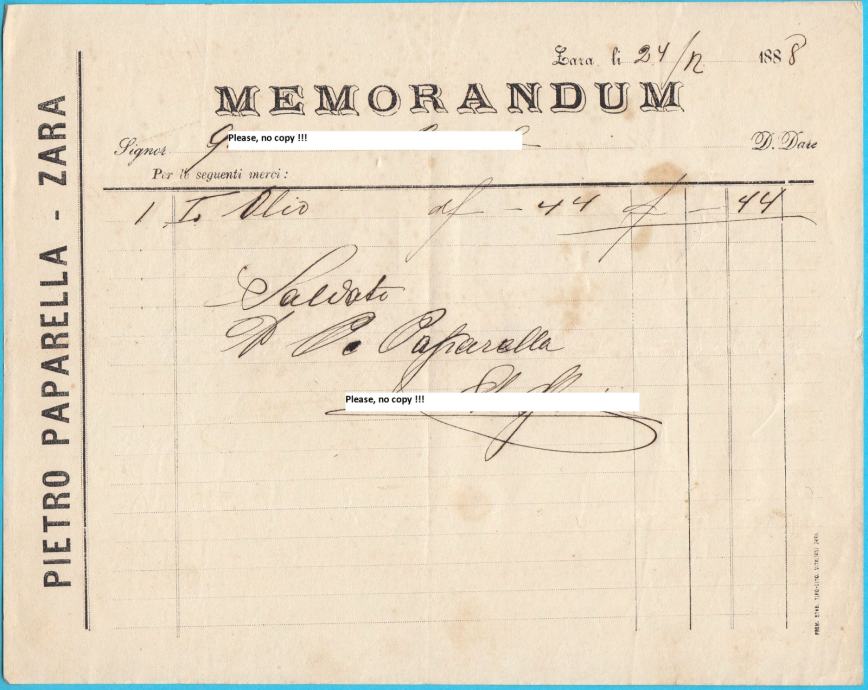 PIETRO PAPARELLA - ZARA
Zara li 24/12 1888
MEMORANDUM
Signor G. Please, no copy !!! D. Dare
Per le seguenti merci :
1 Olio f - 44 f - 44
Saldato
P. Paparella
Please, no copy !!!